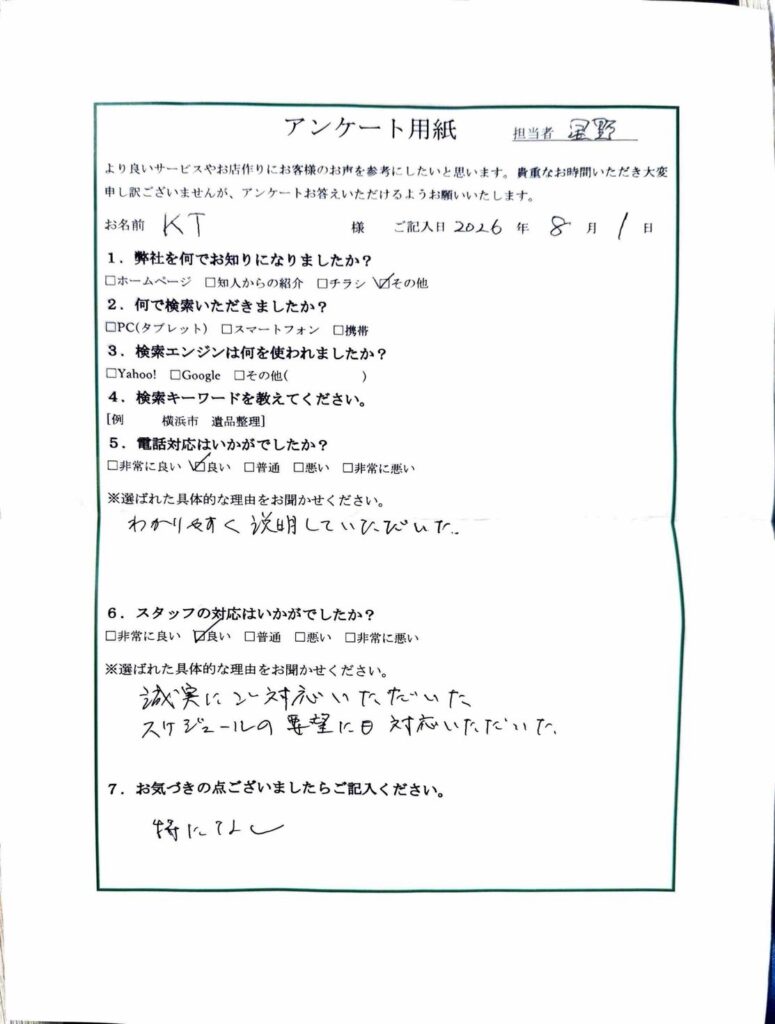 アンケート用紙 担当者 星野
より良いサービスやお店作りにお客様のお声を参考にしたいと思います。貴重なお時間いただき大変
申し訳ございませんが、アンケートお答えいただけるようお願いいたします。
お名前 KT 様 ご記入日 2026 年 8 月 1 日
1．弊社を何でお知りになりましたか？
□ホームページ □知人からの紹介 □チラシ ☑その他
2．何で検索いただきましたか？
□PC(タブレット) □スマートフォン □携帯
3．検索エンジンは何を使われましたか？
□Yahoo! □Google □その他( )
4．検索キーワードを教えてください。
[例 横浜市 遺品整理]
5．電話対応はいかがでしたか？
□非常に良い ☑良い □普通 □悪い □非常に悪い
※選ばれた具体的な理由をお聞かせください。
わかりやすく説明していただいた。
6．スタッフの対応はいかがでしたか？
□非常に良い ☑良い □普通 □悪い □非常に悪い
※選ばれた具体的な理由をお聞かせください。
誠実にご対応いただいた
スケジュールの要望に 対応いただいた。
7．お気づきの点ございましたらご記入ください。
特になし